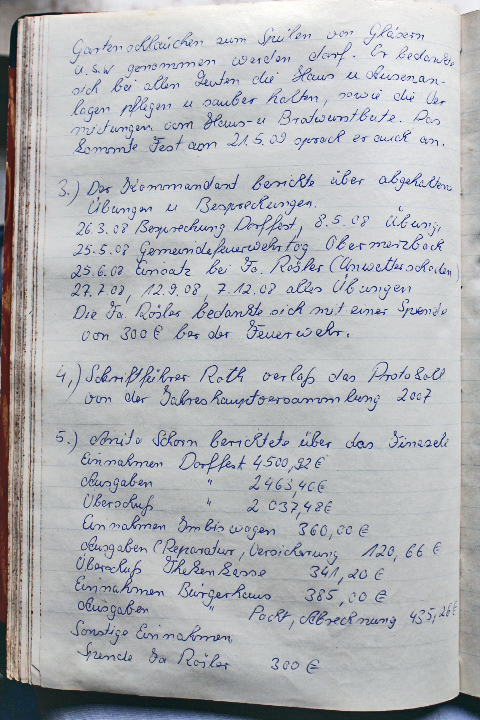 Gartenschläuchen zum Spülen von Gläsern
u.s.w genommen werden darf. Er bedankte
sich bei allen Leuten die Haus u Ausenan-
lagen pflegen u sauber halten, sowie die Ver
mitungen vom Haus- u Bratwurstbute. Das
kommte Fest am 21.5.09 sprach er auch an.
3.) Der Kommandant berichte über abgehaltene
Übungen u Besprechungen.
26.3.08 Besprechung Dorffest, 8.5.08 Übung,
25.5.08 Gemeindefeuerwehrtag Obermerzbach
25.6.08 Einsatz bei Fa. Rösler (Unwetterschaden)
27.7.08, 12.9.08, 7.12.08 alles Übungen
Die Fa. Rösler bedankte sich mit einer Spende
von 300 € bei der Feuerwehr.
4.) Schriftführer Roth verlaß das Protokoll
von der Jahreshauptversammlung 2007
5.) Anita Schorn berichtete über das Finazele
Einnahmen Dorffest 4500,92 €
Ausgaben " 2463,46 €
Überschuß " 2037,48 €
Einnahmen Imbiswagen 360,00 €
Ausgaben (Reparatur, Versicherung 120,66 €
Überschuß Thekenkasse 341,20 €
Einnahmen Bürgerhaus 385,00 €
Ausgaben " Pacht, Abrechnung 435,26 €
Sonstige Einnahmen
Spende Fa Rösler 300 €